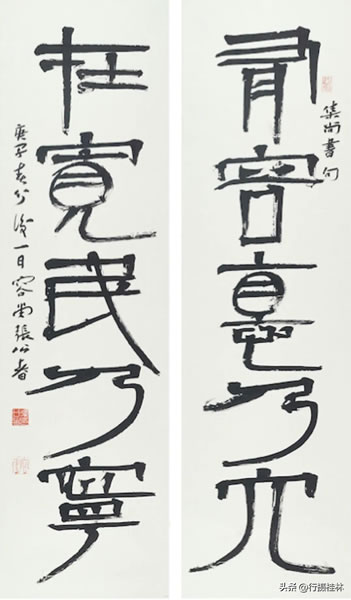 有容悳乃大
集尚書句
在寬民乃寧
庚子春分後一日容堂張公者
头条 @行摄桂林